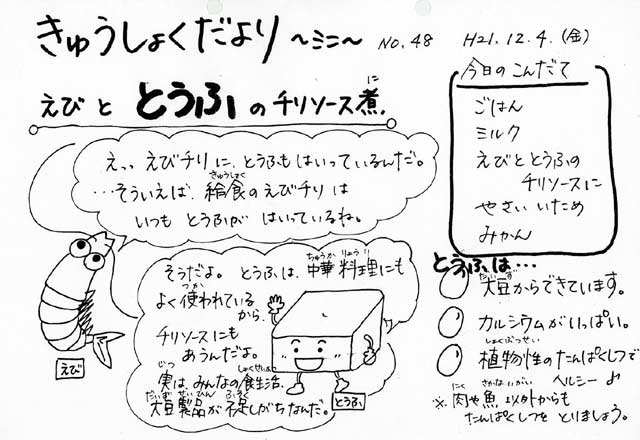 きゅうしょくだより ~ミニ~ No.48 H21.12.4.(金)
えびと とうふ のチリソース煮.
に
今日のこんだて
ごはん
ミルク
えびととうふの
チリソースに
やさいいため
みかん
えっ、えびチリに、とうふもはいっているんだ。
…そういえば、給食のえびチリは
きゅうしょく
いつも とうふが はいっているね。
えび
そうだよ。とうふは、中華料理にも
ちゅうかりょうり
よく使われている
つか
から、
チリソースにも
あうんだよ。
実は、みんなの食生活、
じつ しょくせいかつ
大豆製品が不足しがちなんだ。
だいずせいひん ふそく
とうふ
とうふは…
大豆からできています。
だいず
カルシウムがいっぱい。
植物性のたんぱくしつで
しょくぶつせい
ヘルシー♪
※肉や魚以外からも
にく さかないがい
たんぱくしつをとりましょう。